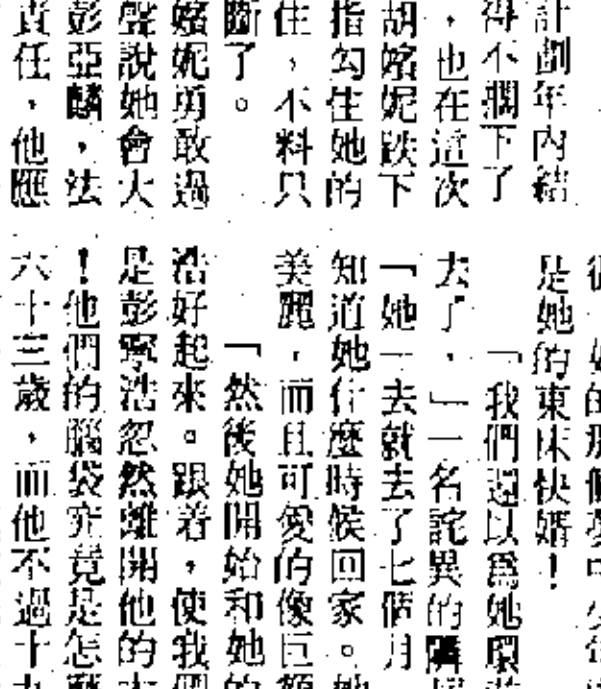 計劃年內結
得不擱下了
,也在這次
胡嫆妮跌下
指勾住她的
住,不料只
斷了。
嫆妮勇敢過
聲說她會大
彭亞麟,法
責任,他應
是她的東床快婿!
「我們還以爲她環
去了,」一名詫異的隣
「她一去就去了七個月
知道她什麼時候回家。她
美麗,而且可愛的像巨額
「然後她開始和她的
浩好起來。跟着,使我們
是彭寧浩忽然離開他的太
!他們的腦袋究竟是怎麼
六十三歲,而他不過十九